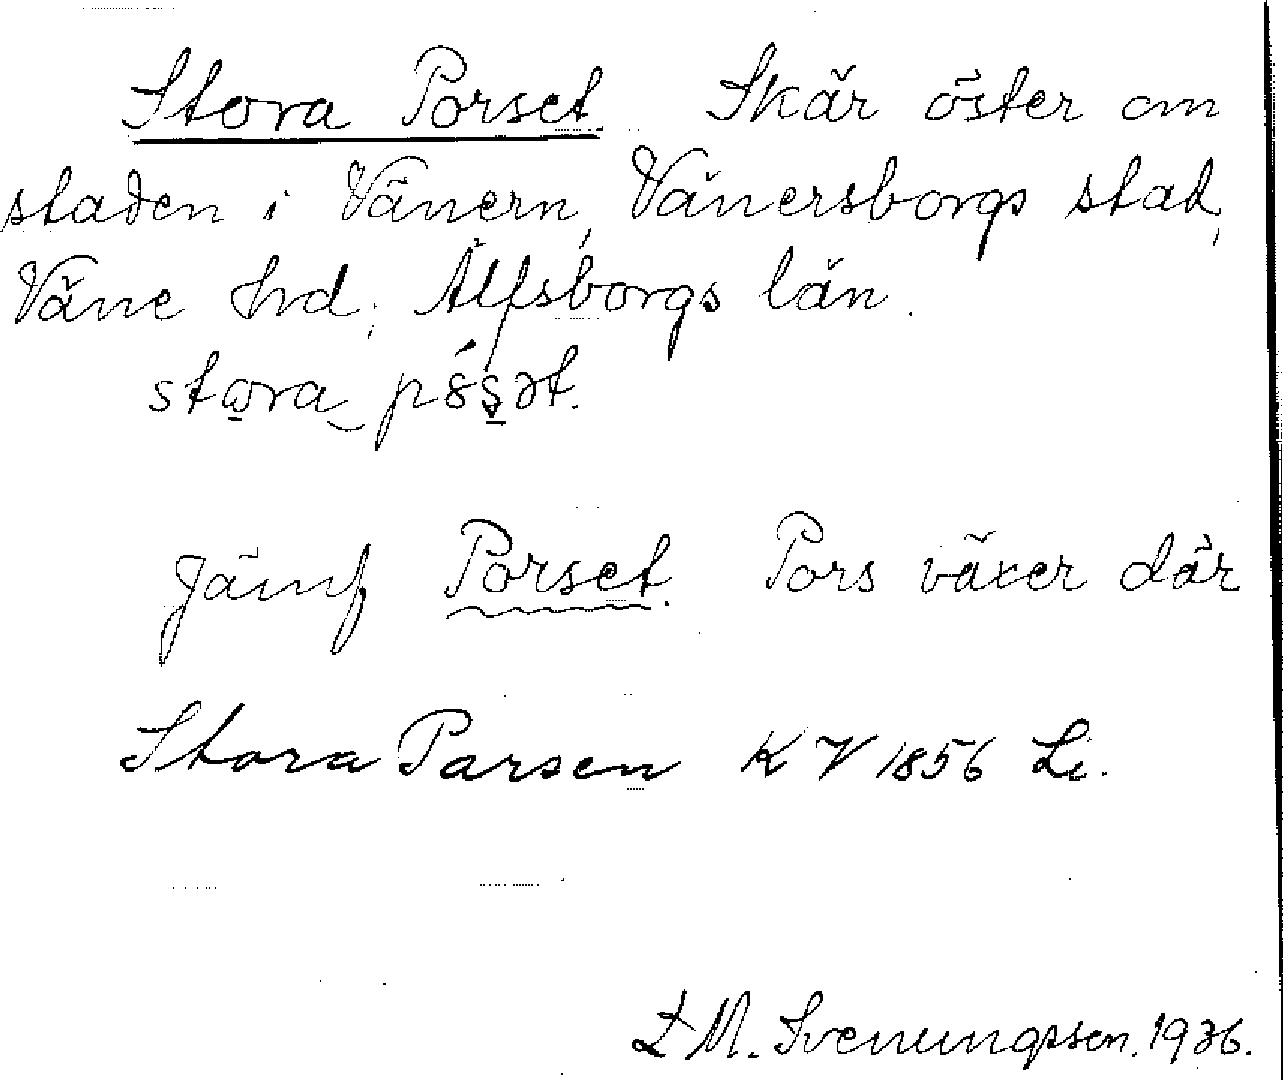 Stora Porset. Skär öster om
staden i Vänern, Vänersborgs stad,
Väne hrd, Älfsborgs län.
Jämf Porset. Pors växer där
Stora Parsen KV 1856 Li.
L M. Svenungsson. 1936.